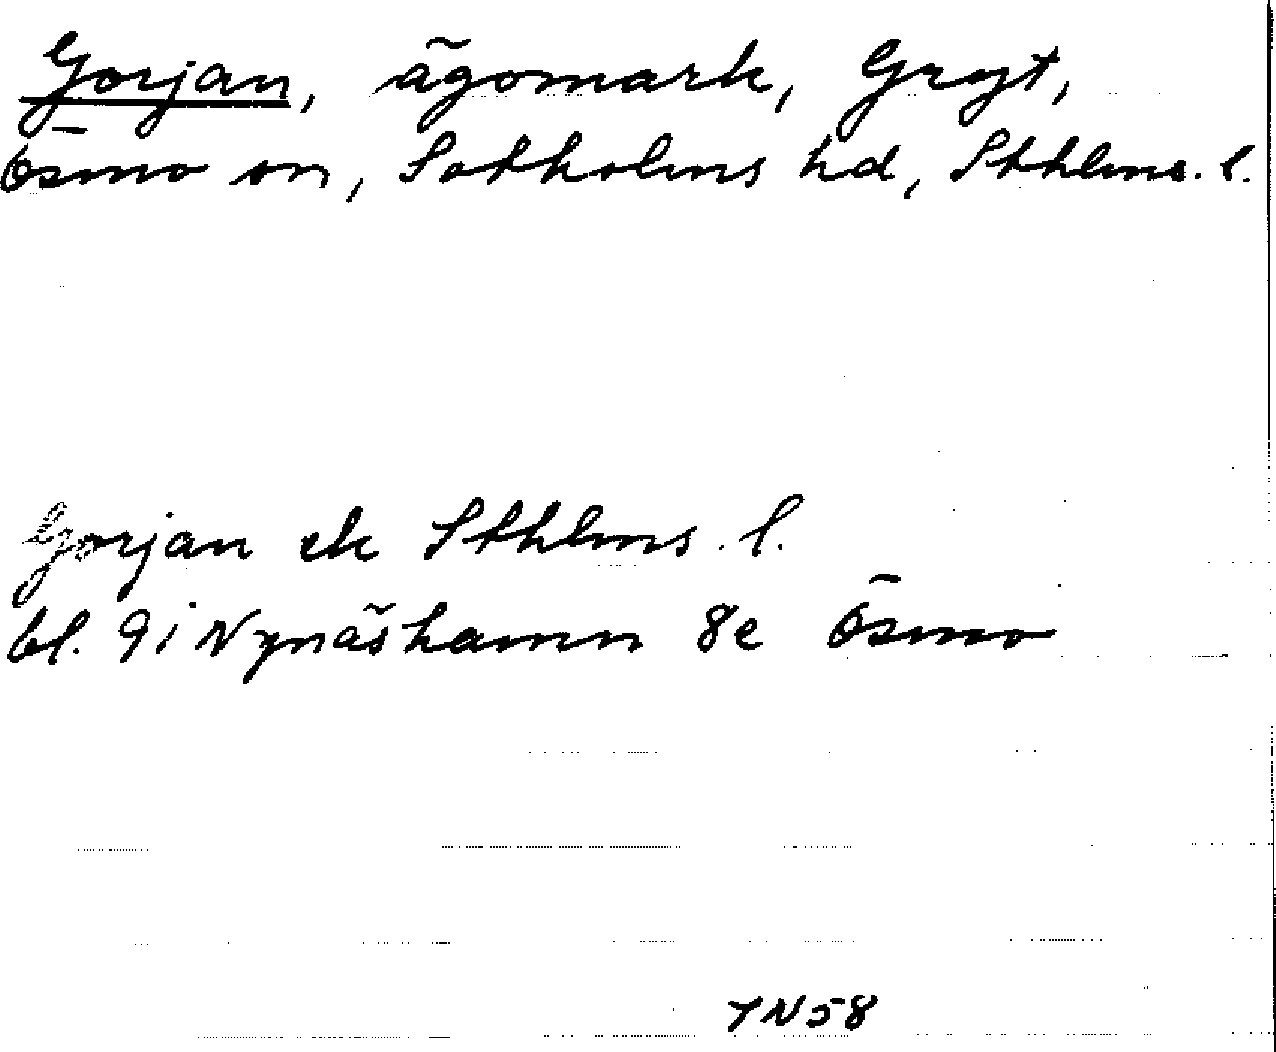 Gorjan, ägomark, Gryt,
Ösmo sn, Sotholms hd, Sthlms. l.
Gorjan ek Sthlms. l.
bl. 9i Nynäshamn 8e Ösmo
TN58